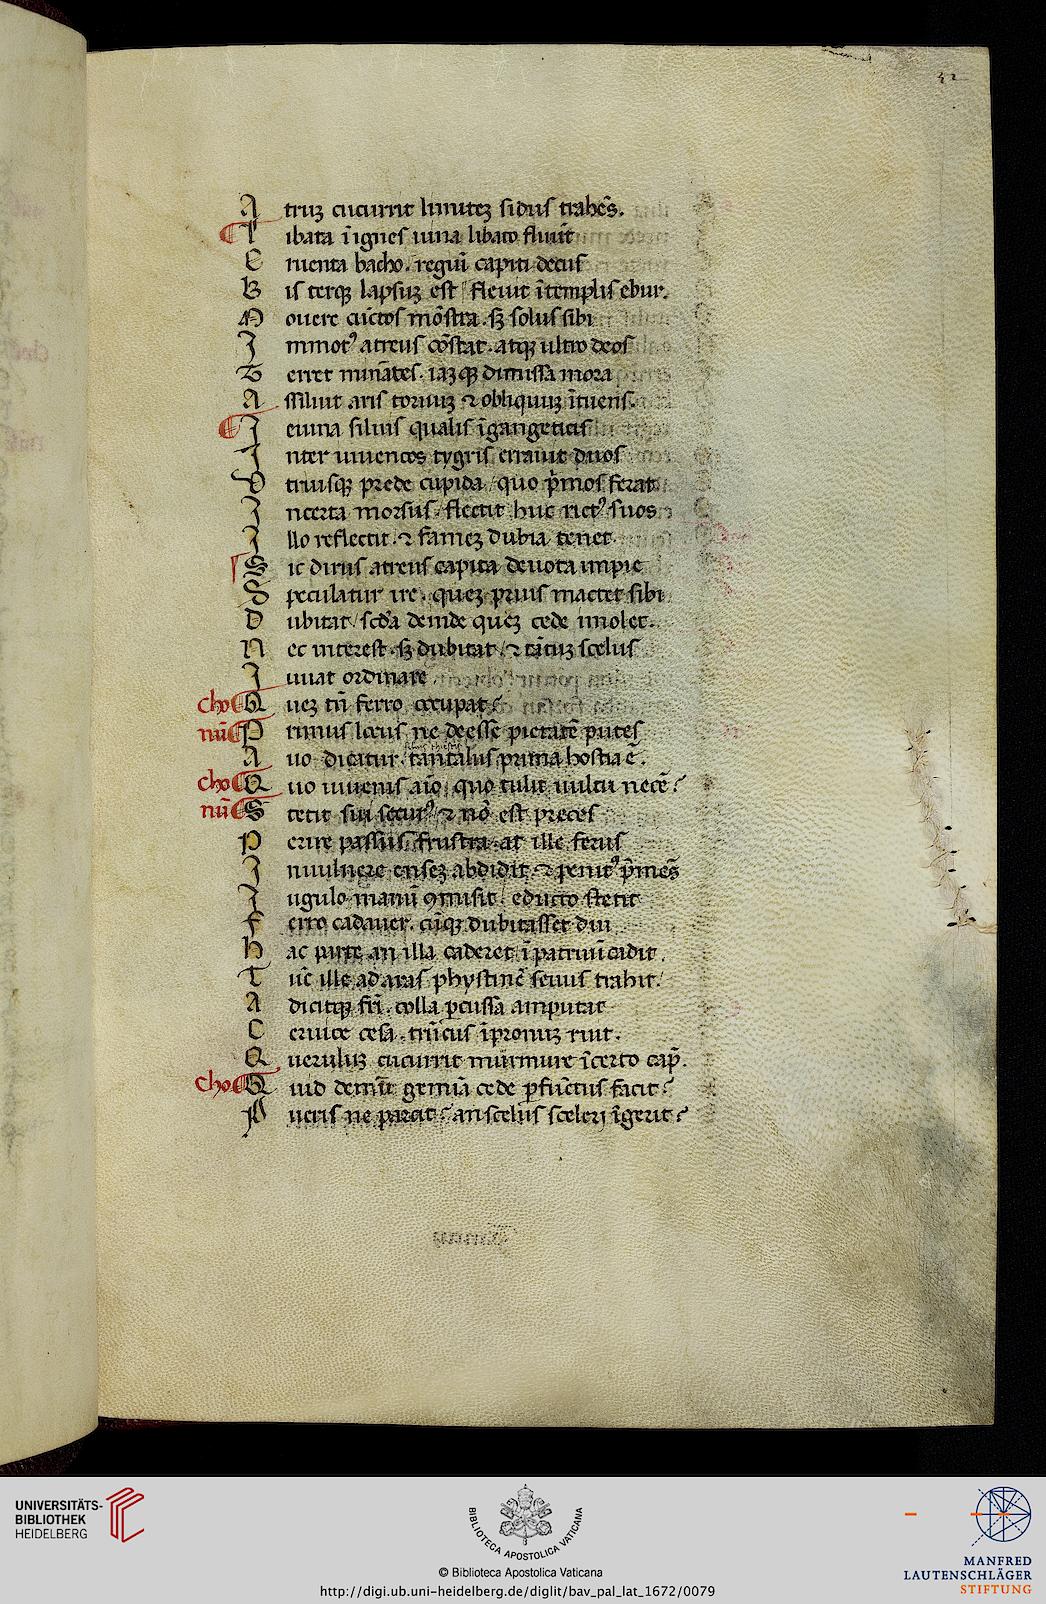 32
A truʒ cucurrit limiteʒ sidus trahēs.
L ibata ī ignes uina libato fluūt
C ruenta bacho. regūī capiti decus
B is terqʒ lapsuʒ est / fleuit ī templis ebur.
M ouere cūctos mōstra. sʒ solus sibi
I mmotꝰ atreus cōstat. atqʒ ultro deos
T erret minātes. iaʒqʒ dimissa mora
A ssiliuit aris toruuʒ ⁊ obliquuʒ ītuens.
I eiuna siluis qualis ī gangeticis
I nter iuuencos tygris errauit duos
U triusqʒ prede cupida / quo p̄mos ferat
I ncerta morsus / flectit huc rictꝰ suos
I llo reflectit. ⁊ fameʒ dubia tenet.
S ic dirus atreus capita deuota impie
S peculatur ire. queʒ prius mactet sibi
D ubitat / scđa deinde queʒ cede imolet.
N ec interest. sʒ dubitat / ⁊ tātuʒ scelus
I uuat ordinare
cho Q ueʒ tn̄ ferro occupat?
nūc P rimus locus ne deesse pietatē putes
A uo dicatur. tantalus prima hostia ē.
cho Q uo iuuenis aīo, quo tulit uultu necē?
nūc S tetit sui securꝰ / ⁊ nō est preces
P erire passus frustra. at ille ferus
I n uulnere enseʒ abdidit. ⁊ penitꝰ p̄mēs
I ugulo manū ꝯmisit. educto stetit
F erro cadauer. cūqʒ dubitasset diu
H ac parte an illa caderet ī patruū cadit.
T ūc ille ad aras phystinē seuus trahit.
A dicitqʒ fr̄i. colla ꝑcussa amputat
C eruice cesa. trūcus ī pronuʒ ruit.
Q uerulūʒ cucurrit murmure īcerto cap̄.
cho Q uid demū gemiā cede ꝑfūctus facit?
P ueris ne parcit? an scelus sceleri īgerit?
UNIVERSITÄTS-
BIBLIOTHEK
HEIDELBERG
BIBLIOTECA APOSTOLICA VATICANA
© Biblioteca Apostolica Vaticana
http://digi.ub.uni-heidelberg.de/diglit/bav_pal_lat_1672/0079
MANFRED
LAUTENSCHLÄGER
STIFTUNG